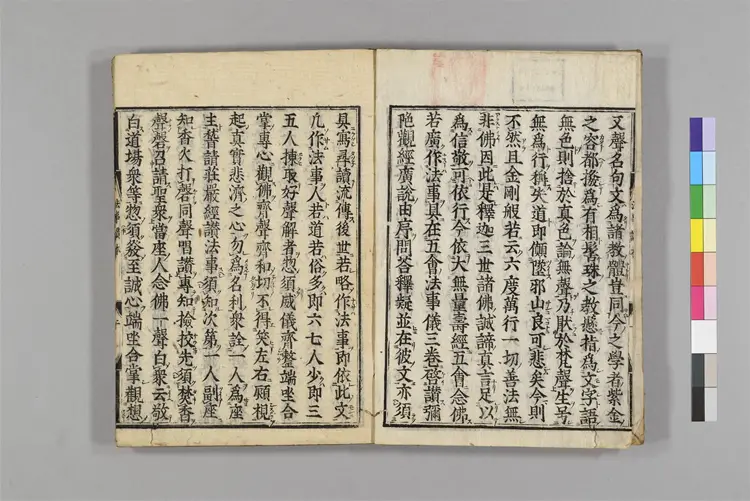 又聲名句文為諸教體豈同今之學者紫金
之容都撥為有相髻珠之教懸指為文字語
無色則捨於真色論無聲乃猒於梵聲生号
無為行稱失道即傾墜邪山良可悲矣今則
不然且金剛般若云六度萬行一切善法無
非佛因此是釋迦三世諸佛誠諦真言足以
為信敬可依行今依大無量壽經五會念佛
若廣作法事具在五會法事儀三卷啓讃彌
陀觀經廣説由序問答釋疑並在彼文亦須
具寫尋讀流傳後世若略作法事即依此文
凡作法事人若道若俗多即六七人少即三
五人揀取好聲解者惣須威儀齊整端坐合
掌專心觀佛齊聲齊和切不得笑左右顧視
起真實悲濟之心勿為名利衆詮一人為座
主誓請莊嚴經讃法事須知次第一人副座
知香火打磬同聲唱讃專知撿挍先須焚香
聲磬召請聖衆當座人念佛一聲白衆云敬
白道場衆等惣須發至誠心端坐合掌觀想